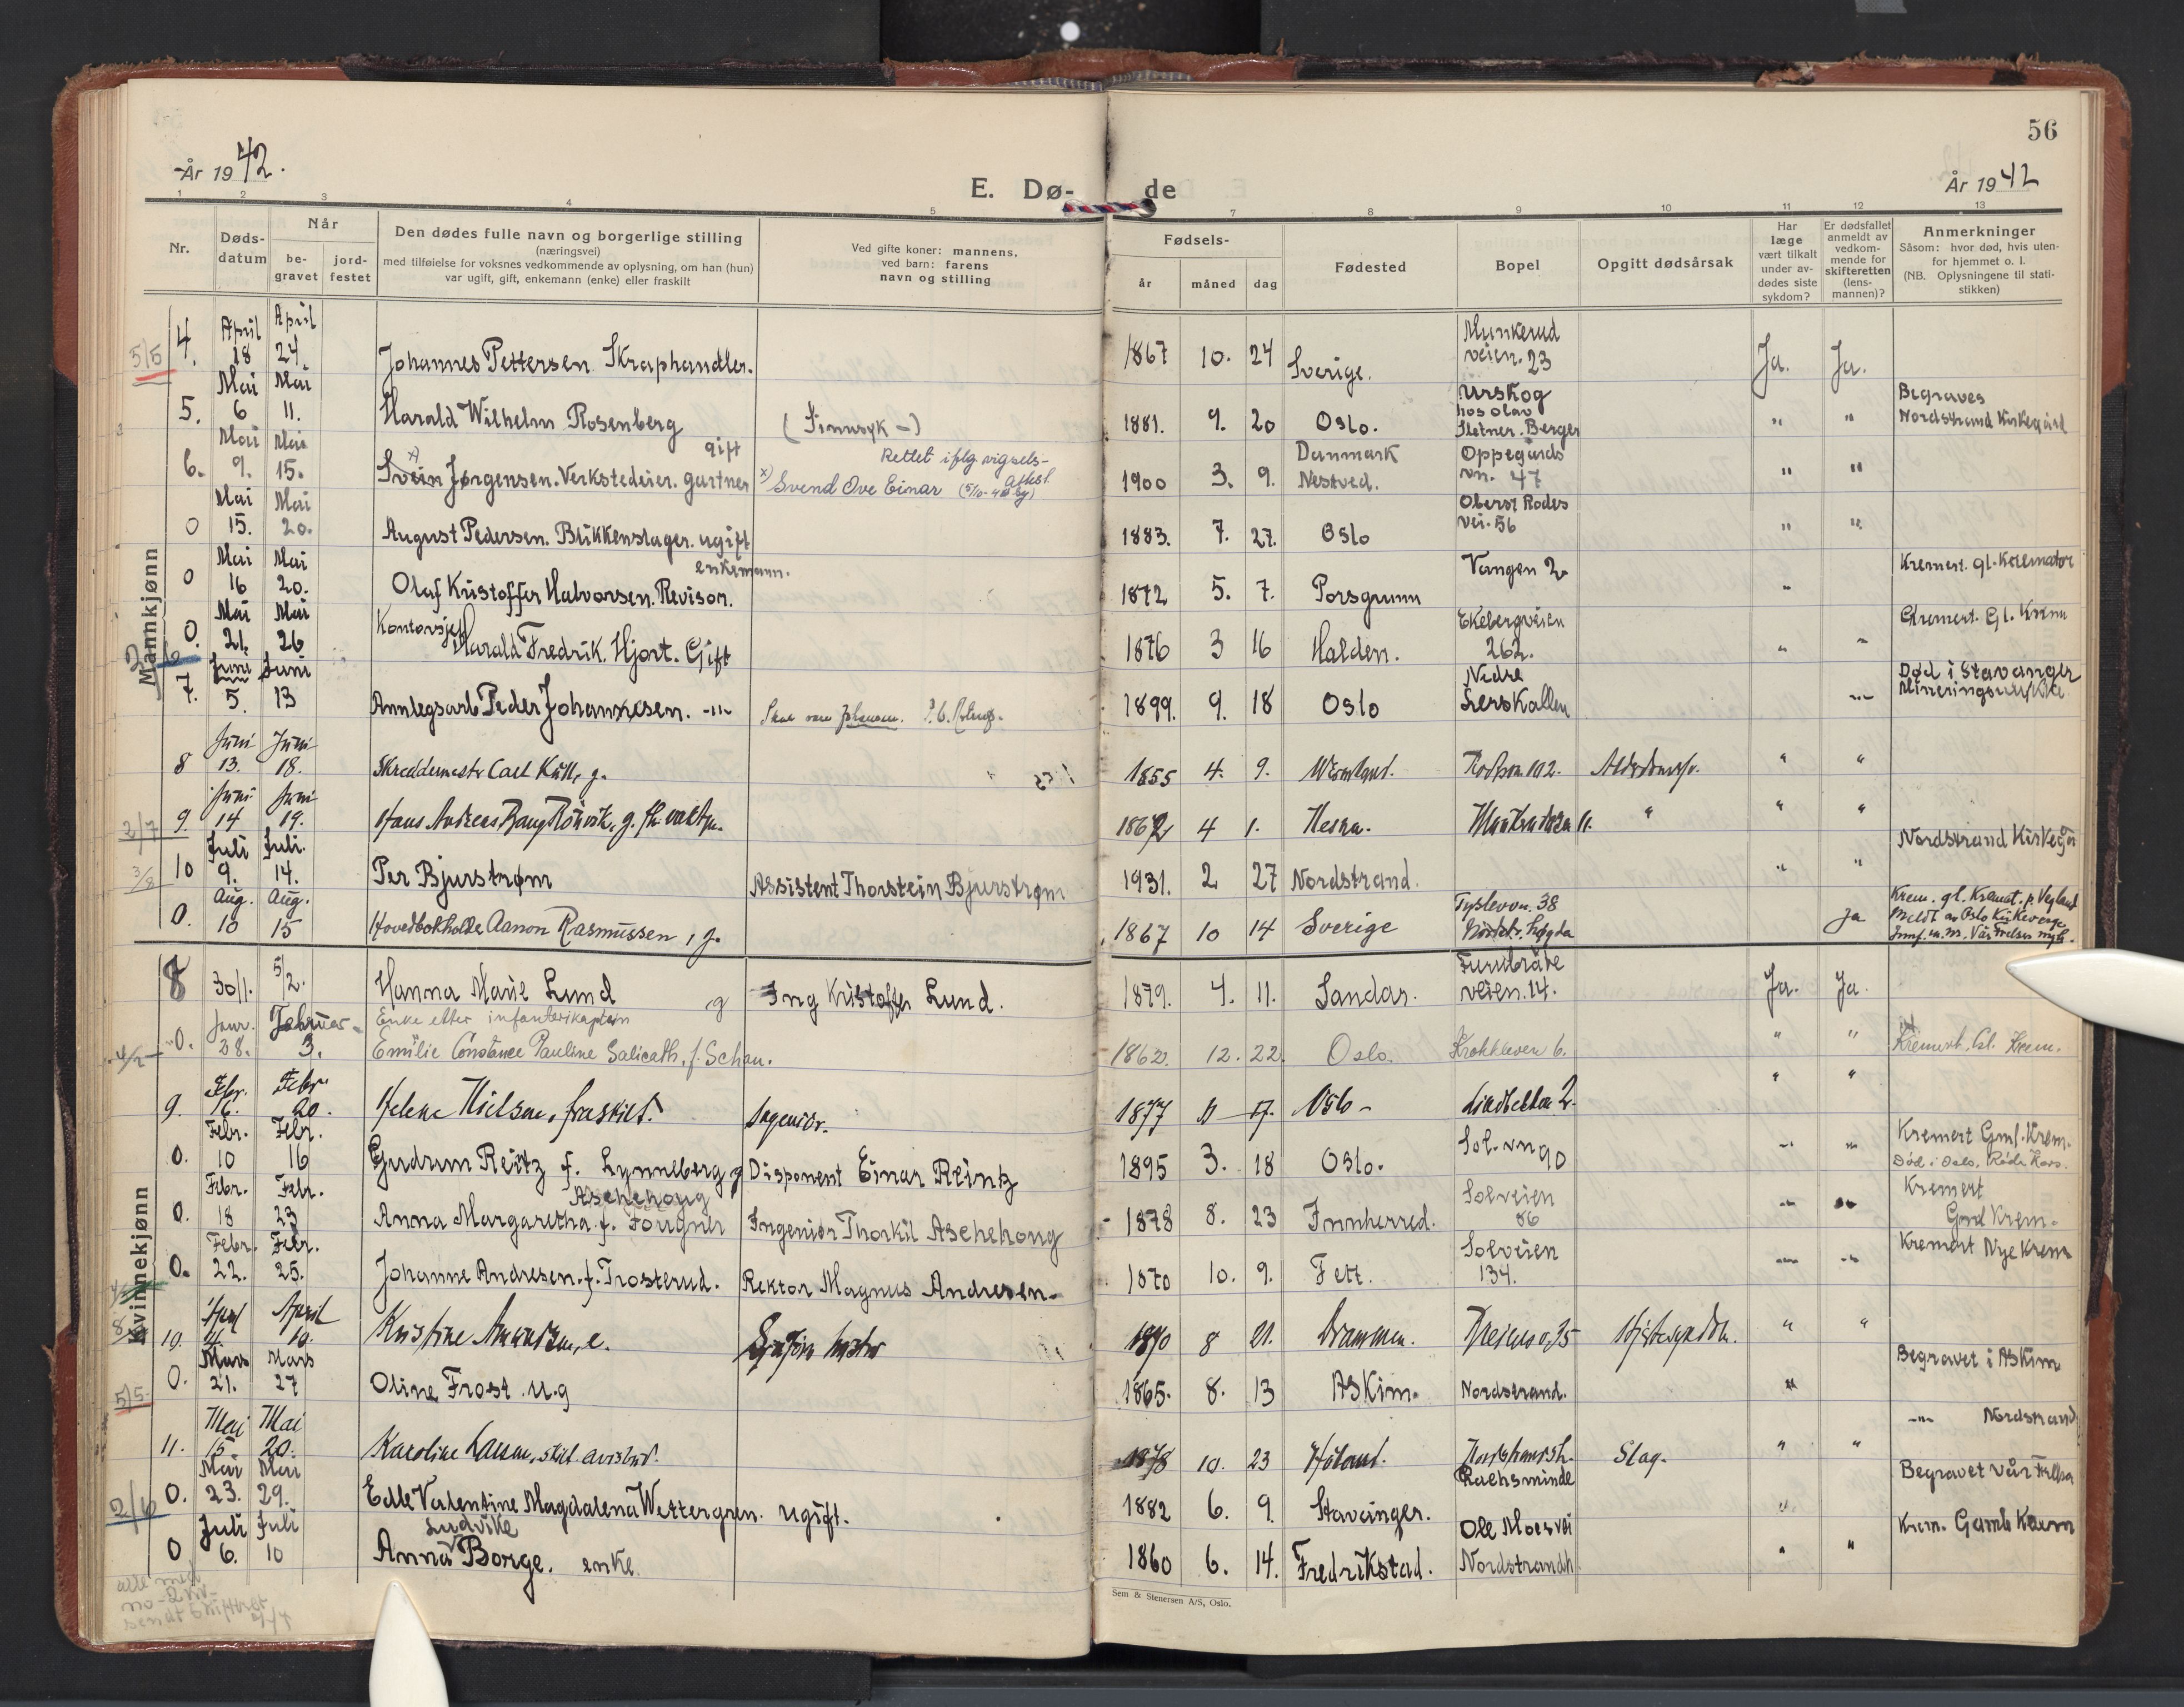 56
År 1942.
År 1942
E. Dø-de
1 2 3 4 5 7 8 9 10 11 12 13
Nr.
Døds-
datum
Når
be-
gravet
jord-
festet
Den dødes fulle navn og borgerlige stilling
(næringsvei)
med tilføielse for voksnes vedkommende av oplysning, om han (hun)
var ugift, gift, enkemann (enke) eller fraskilt
Ved gifte koner: mannens,
ved barn: farens
navn og stilling
Fødsels-
år måned dag
Fødested
Bopel
Opgitt dødsårsak
Har
læge
vært tilkalt
under av-
dødes siste
sykdom?
Er dødsfallet
anmeldt av
vedkom-
mende for
skifteretten
(lens-
mannen)?
Anmerkninger
Såsom: hvor død, hvis uten-
for hjemmet o. l.
(NB. Oplysningene til stati-
stikken)
Mannkjønn
5/5 4. April 18 April 24. Johannes Pettersen Skraphandler. 1867 10. 24 Sverige. Munkerud veien. 23 Ja. Ja.
5. Mai 6 Mai 11. Harald Wilhelm Rosenberg (Sinnsyk -) 1881. 9. 20 Oslo. Urskog hos Olav Sletner. Berger " " Begraves Nordstrand Kirkegård
6. Mai 9. Mai 15. x) Svein Jørgensen. Verkstedeier. gartner gift x) Svend Ove Einar Rettet iflg. vigsels- attest 1900 3. 9. Danmark Nestved. Oppegårds vn. 47 " "
0 Mai 15. Mai 20. August Pedersen. Blikkenslager. ugift 1883. 7. 27. Oslo Oberst Rodes vei. 56 " "
0 Mai 16 Mai 20. Olaf Kristoffer Halvorsen. Revisor. enkemann. 1872 5. 7. Porsgrunn Vangen 2 " Kremert. gl. Kremator
0. Mai 21. Mai 26 Kontorsjef Harald Fredrik. Hjort. Gift 1876 3 16 Halden. Ekebergveien 262. " " Kremert. Gl. Krem
7. Juni 5. Juni 13 Anlegsarb Peder Johannesen. -"- 1899. 9. 18 Oslo Nedre Lerskallen -"- Død i Stavanger Mineringsulykke
8 Juni 13. Juni 18. Skreddermester Carl Küll, g. 1855 4. 9. Wermland. 102. " "
2/7 9. Juni 14 Juni 19. Hans Andreas Bang Rönvik, g. 1862 4 1. Hesna. 11. " " "
3/8 10 Juli 9. Juli 14. Per Bjurstrøm Assistent Thorstein Bjurstrøm 1931. 2 27 Nordstrand. " " Nordstrand Kirkegå
0. Aug. 10 Aug. 15 Hovedbokholder Aanon Rasmussen, g. 1867 10 14 Sverige 38 Nordstr. høgda Ja Krem. gl. Kremat. p. Vegland Meldt av Oslo Kirkeverge
Kvinnekjønn
8 30/1. 5/2. Hanna Marie Lund g Ing Kristoffer Lund. 1879. 4. 11. Sandar. Furubråte veien. 14. Ja. Ja.
4/2 0. Janr. 28. Februar 3. Enke etter infanterikaptein Emilie Constance Pauline Salicath, f. Schau. 1862. 12. 22. Oslo. Krokkleven 6. " " Kremert. Gl. Krem.
9. Febr. 16. Febr. 20. Helene Nielsen, fraskilt. Ingeniør. 1877 11 17. Oslo - 2. " "
0. Febr. 10 Febr. 16 Gudrun Reitz f. Lynneberg g Disponent Einar Reintz 1895 3. 18 Oslo. Sol. vn 90 -"- -"- Kremert Gml. Krem. Død i Oslo, Røde Kors.
0. Febr. 18 Febr. 23 Anna Margaretha Aschehoug f. Fougner Ingeniør Thorkil Aschehoug 1878 8. 23 Innherred. Solveien 86 -"- -"- Kremert Gml Krem.
0. Febr. 22. Febr. 25. Johanne Andresen. f. Trosterud. Rektor Magnus Andresen. 1870 10. 9. Fett. Solveien 134. -"- -"- Kremert Nye Krem
10. April April 10. Kristine Amundsen, e. 1890 8 21. Drammen. 35 Hjertesykdom. " "
5/5 0. Mars 21. Mars 27 Oline Frost. u.g 1865. 8. 13 Askim. Nordstrand. " Begravet i Askim
11. Mai 15. Mai 20. Karoline Larsen, skilt. avisbud. 1878 10. 23 Høland. Slag. " " -"- Nordstrand
2/6 0. Mai 23. Mai 29. Edle Valentine Magdalena Wettergren. ugift. 1882 6. 9. Stavanger. Raehsminde " Begravet Vår Frelser
0 Juli 6. Juli 10 Anna Ludvike Borge. enke 1860 6. 14. Fredrikstad. Ole Moes vei Nordstrandh " " Krem. Gamle Krem
alle med
no-2 kv-
sendt skifteret
Sem & Stenersen A/S, Oslo.